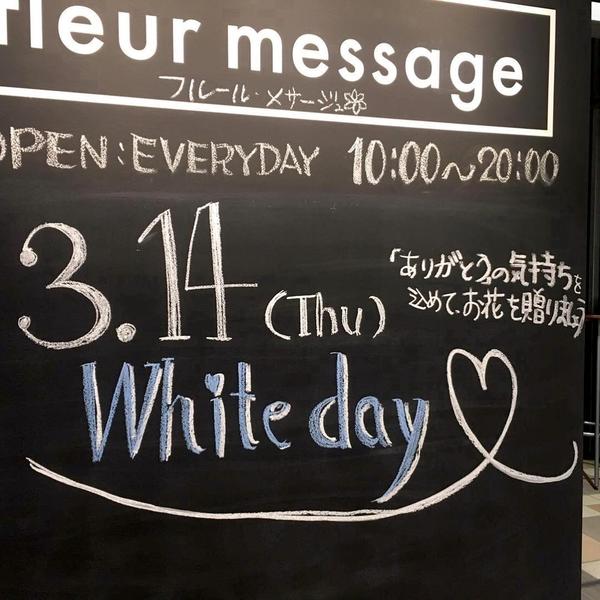 fleur message
フルール・メサージュ
OPEN:EVERYDAY 10:00～20:00
3.14 (Thu)
「ありがとう」の気持ちを
込めて、お花を贈りましょう
White day